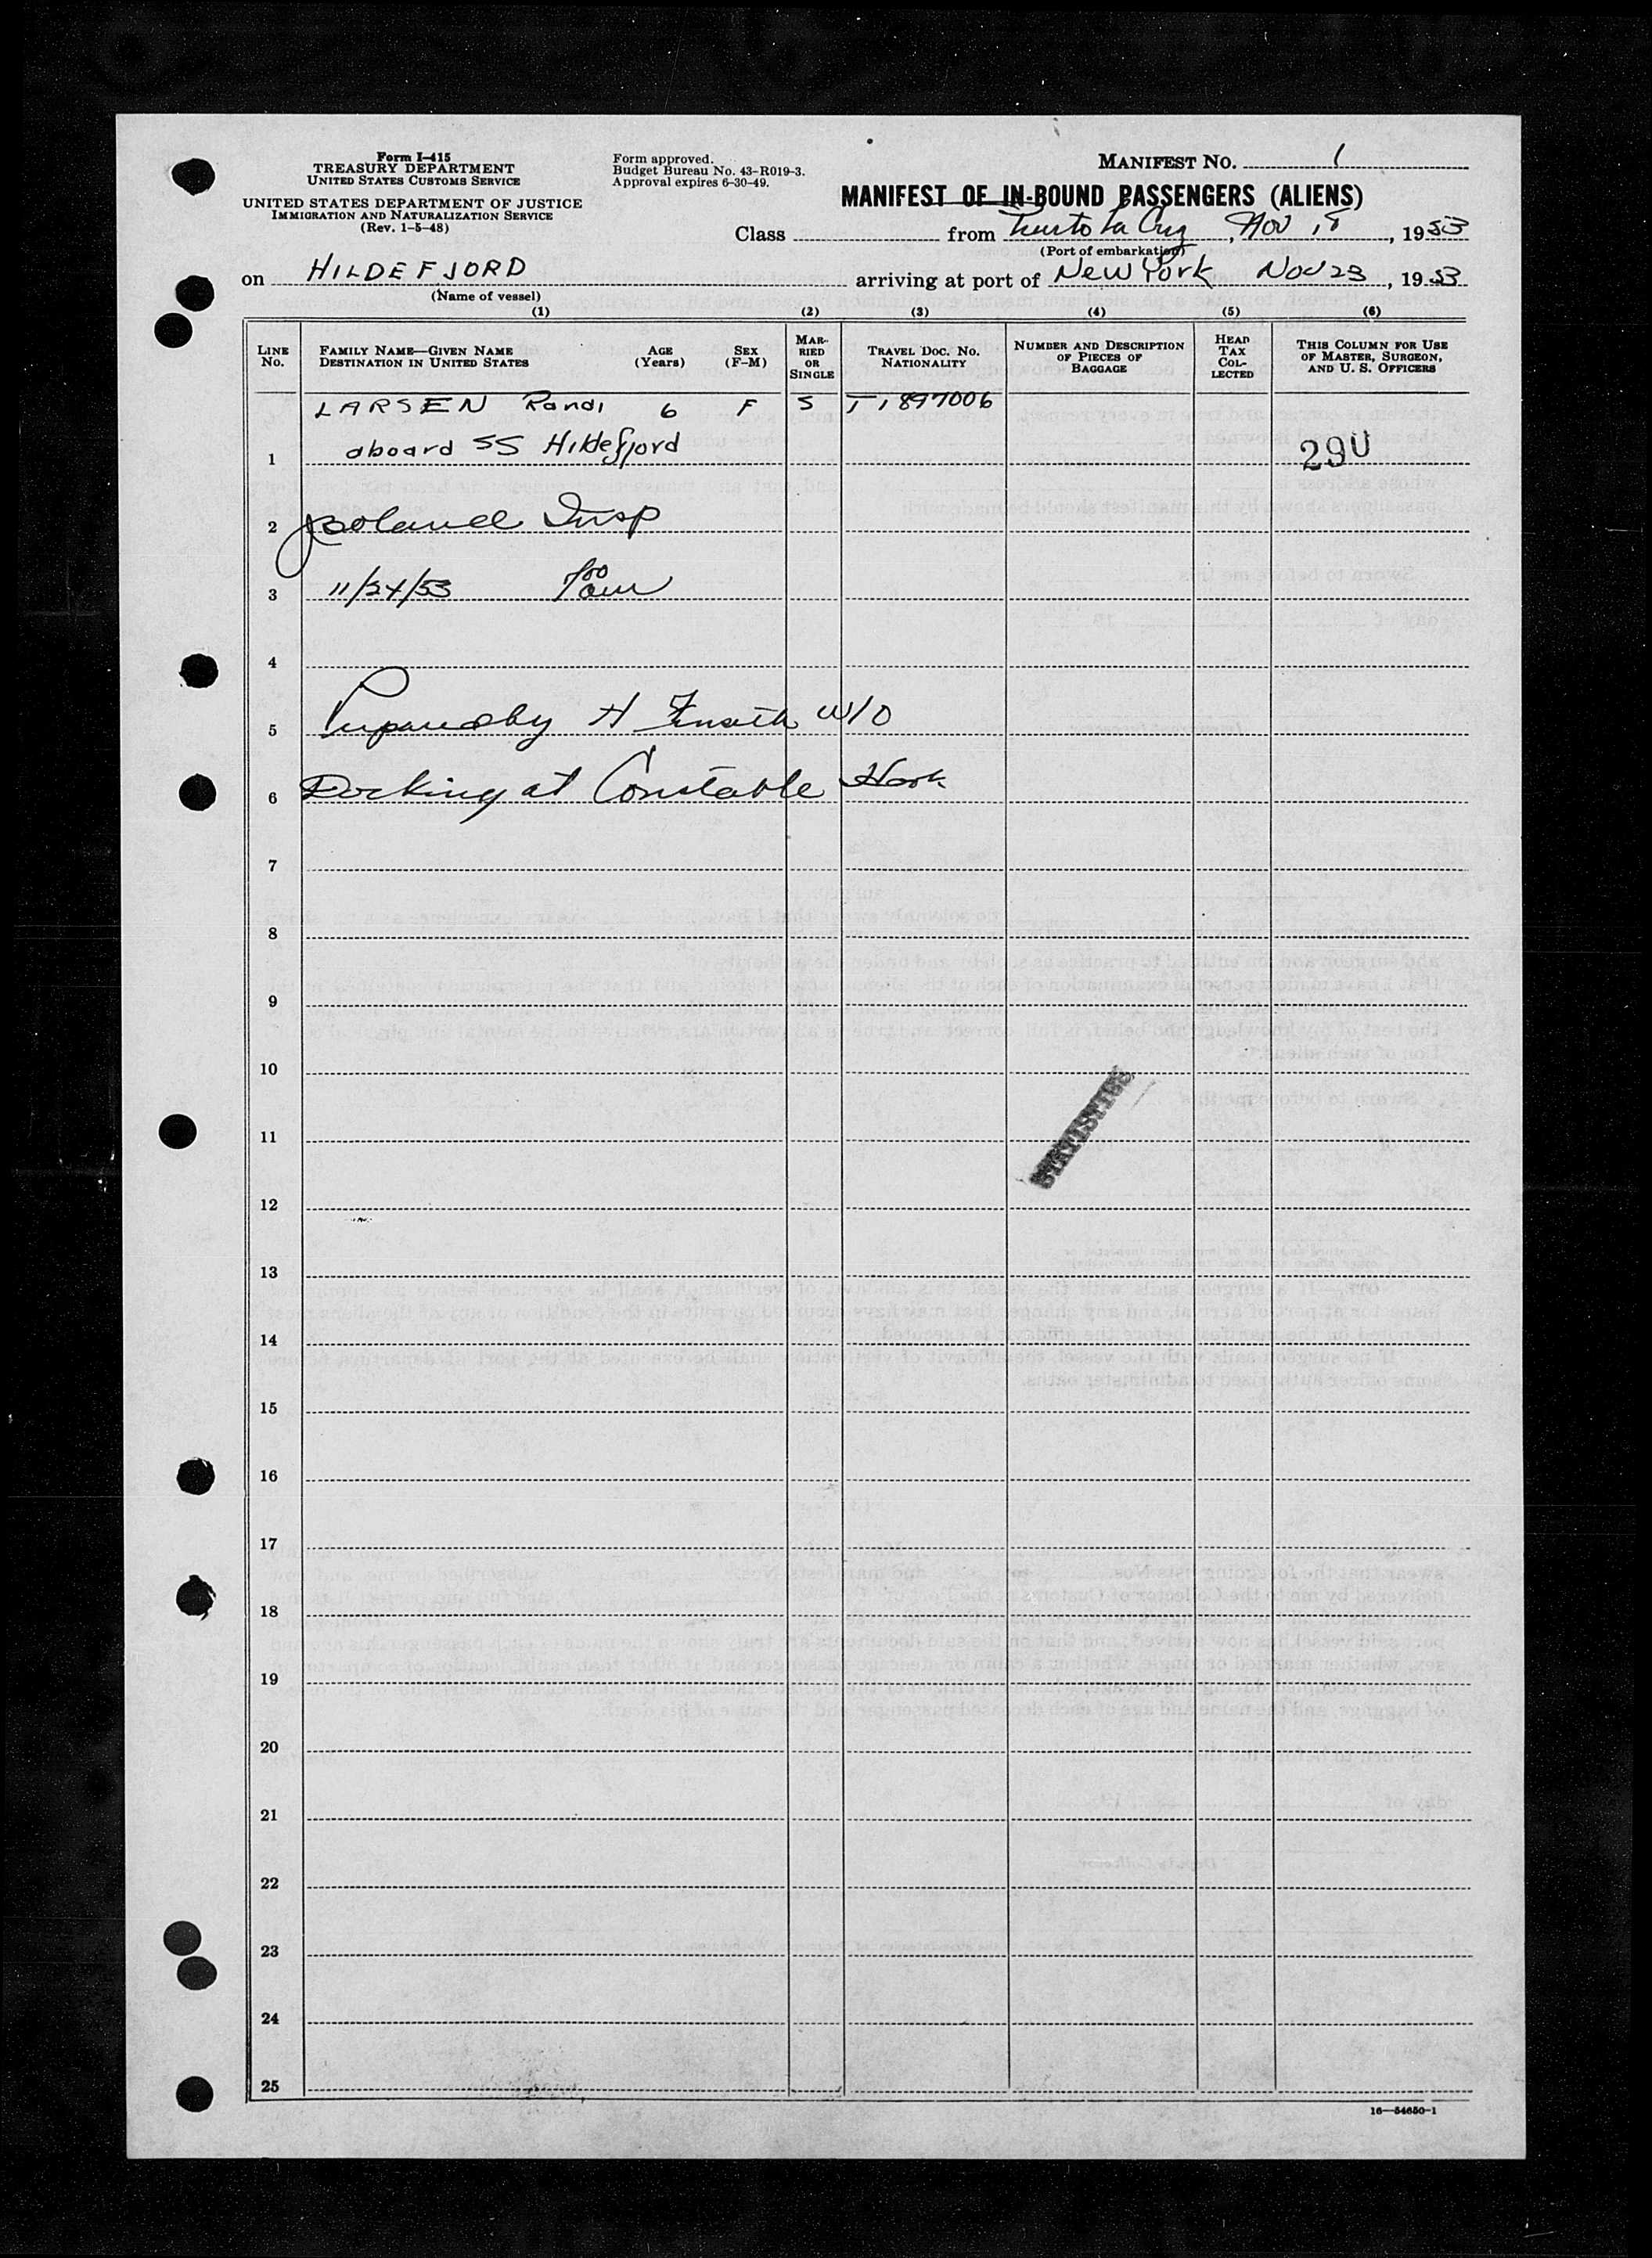 Form I-415
TREASURY DEPARTMENT
UNITED STATES CUSTOMS SERVICE
UNITED STATES DEPARTMENT OF JUSTICE
IMMIGRATION AND NATURALIZATION SERVICE
(Rev. 1-5-48)
Form approved.
Budget Bureau No. 43-R019-3.
Approval expires 6-30-49.
MANIFEST NO. 1
MANIFEST OF IN-BOUND PASSENGERS (ALIENS)
Class from Puerto La Cruz, Nov 18, 1953
(Port of embarkation)
on HILDEFJORD arriving at port of New York Nov 23, 1953
(Name of vessel)
(1) (2) (3) (4) (5) (6)
LINE No.
FAMILY NAME—GIVEN NAME
DESTINATION IN UNITED STATES
AGE (Years)
SEX (F-M)
MARRIED OR SINGLE
TRAVEL DOC. NO. NATIONALITY
NUMBER AND DESCRIPTION OF PIECES OF BAGGAGE
HEAD TAX COLLECTED
THIS COLUMN FOR USE OF MASTER, SURGEON, AND U. S. OFFICERS
LARSEN Randi 6 F S T1 897006
1 aboard SS Hildefjord 290
2 Insp
3 11/24/53
4
5 Prepared by H W/O
6 Docking at Constable Hook
7
8
9
10
11
STATISTICS
12
13
14
15
16
17
18
19
20
21
22
23
24
25
16—54650-1